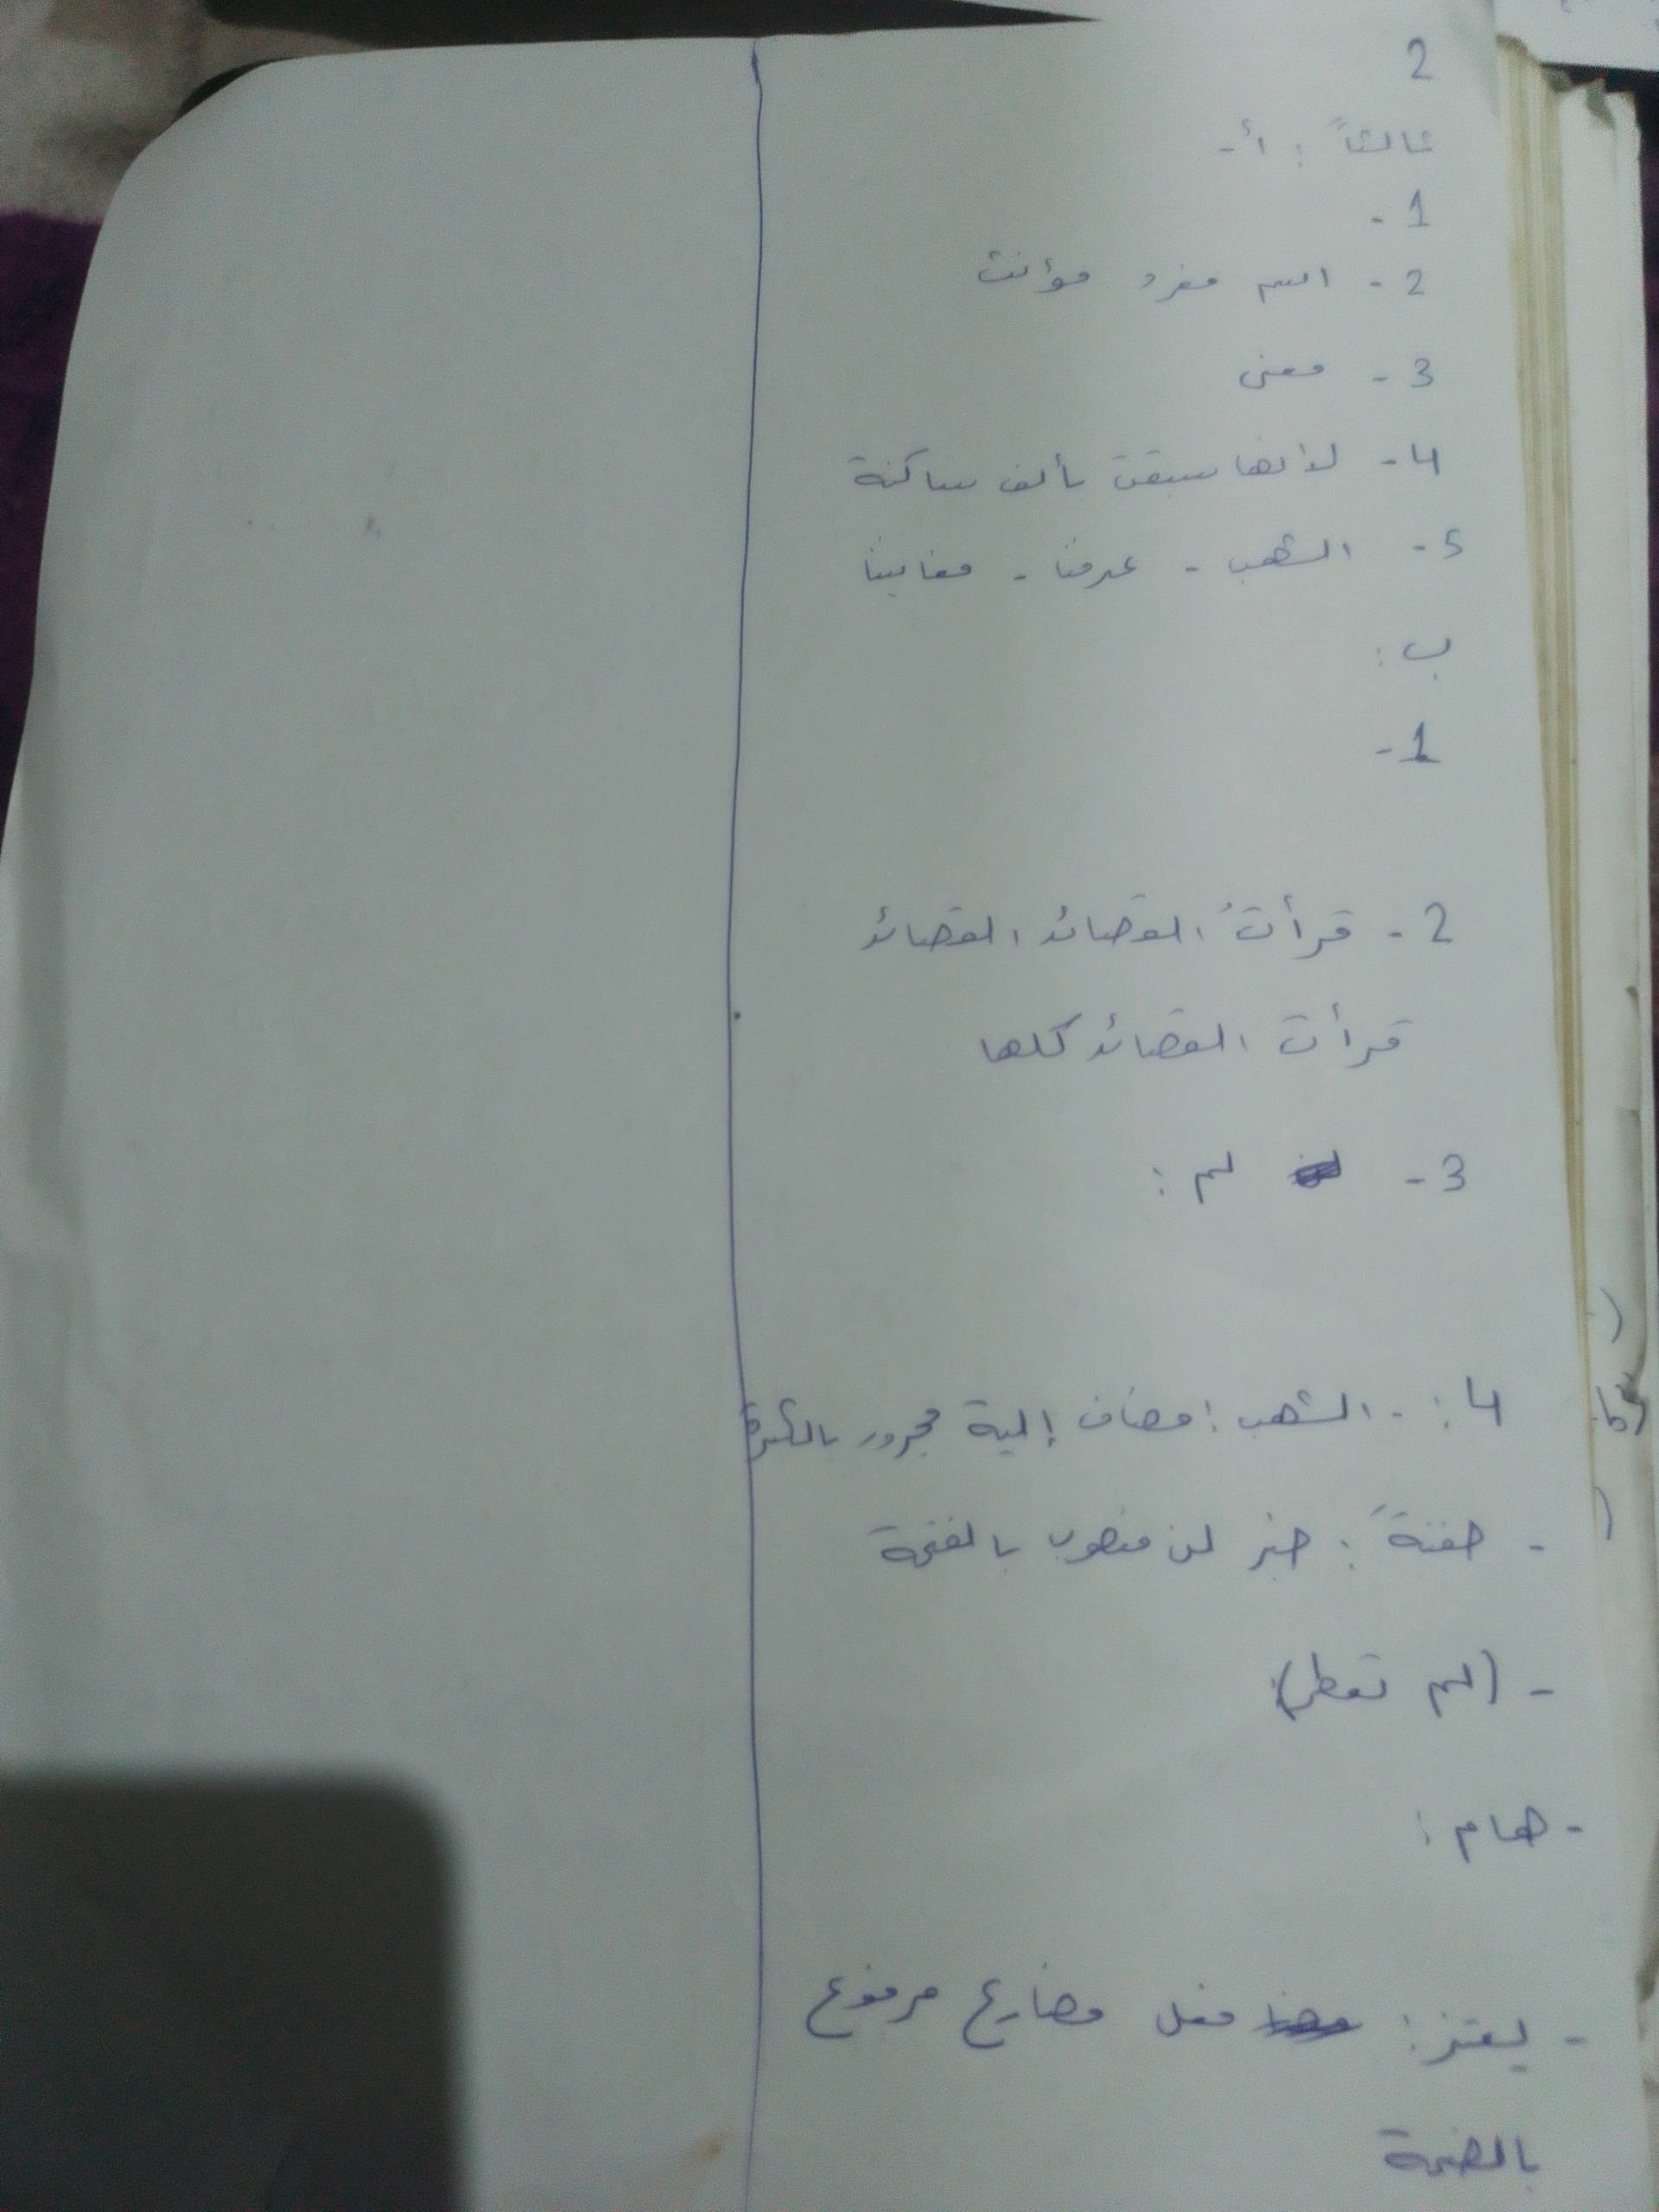 2
ثالثاً : أ-
1 -
2 - اسم مفرد مؤنث
3 - معنى
4- لأنها سبقت بألف ساكنة
5- الشهب - عرفنا - مغانينا
ب :
1-
2 - قرأتُ القصائد القصائد
قرأت القصائد كلها
3 - لم :
4 : - الشهب : مضاف إلية مجرور بالكسرة
- حفنةً : خبر لن منصوب بالفتحة
- (لم تعطِ)
- هام :
- يعتز : فعل مضارع مرفوع
بالضمة